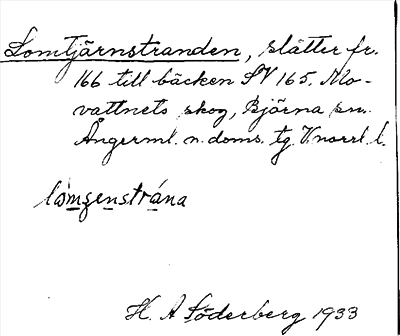 Lomtjärnstranden, slätter fr.
166 till bäcken SV 165, Mo-
vattnets skog, Björna sn.
Ångerml. n. doms. tg. V.norrl. l.
H. A Söderberg 1933